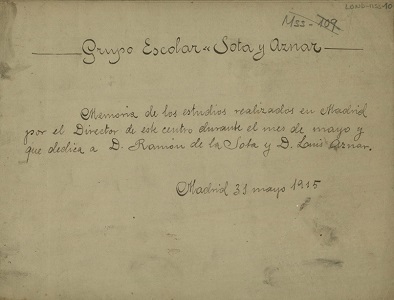 Mss-109
Grupo Escolar "Sota y Aznar
Memoria de los estudios realizados en Madrid
por el Director de este centro durante el mes de mayo y
que dedica a D. Ramón de la Sota y D. Louis Aznar.
Madrid 31 mayo 1915